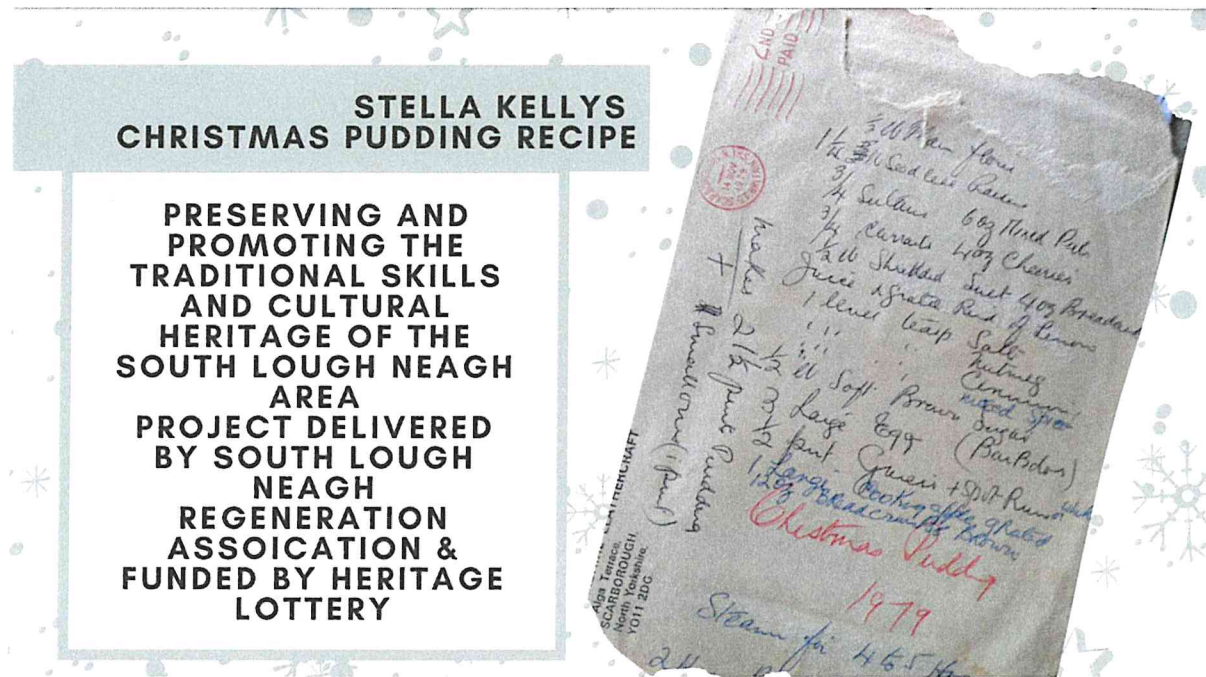 STELLA KELLYS
CHRISTMAS PUDDING RECIPE
PRESERVING AND
PROMOTING THE
TRADITIONAL SKILLS
AND CULTURAL
HERITAGE OF THE
SOUTH LOUGH NEAGH
AREA
PROJECT DELIVERED
BY SOUTH LOUGH
NEAGH
REGENERATION
ASSOICATION &
FUNDED BY HERITAGE
LOTTERY
2ND
PAID
lb Plain flour
1 1/4 Seedless
3/4 6oz Mixed Peel
3/4 Currants 4oz Cherries
1/2 lb Shredded Suet 4oz
Juice & grated Rind of Lemon
1 level teasp Salt
" " " Nutmeg
" " "
mixed Spice
1/2 lb Soft Brown Sugar
(Barbdos)
Large Egg
1/2 pint + Spot Rum
1 Large cooking apple grated
12oz Breadcrumbs Brown
Christmas Pudding
1979
Steam for 4 to 5
2
Makes 2 1/2 pint Pudding
+ Small one (1 pint)
LEATHERCRAFT
Alga Terrace,
SCARBOROUGH
North Yorkshire,
YO11 2DG.